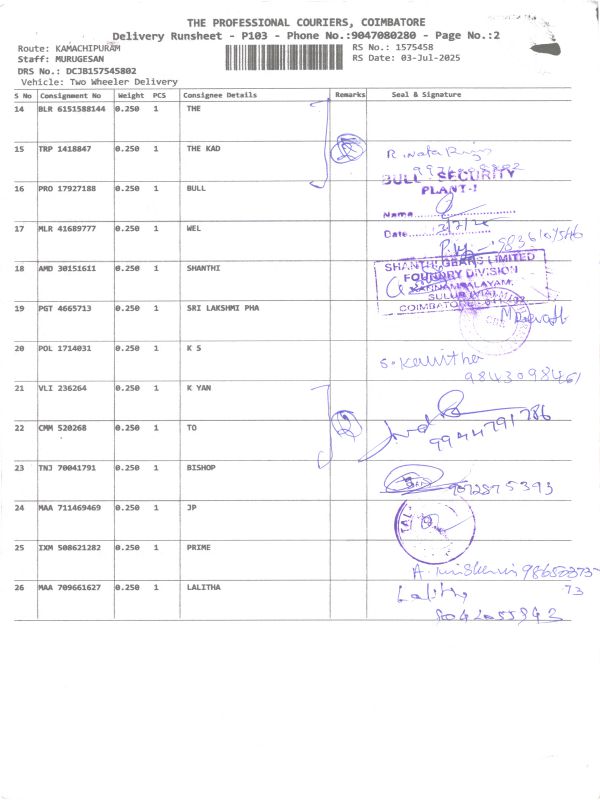 THE PROFESSIONAL COURIERS, COIMBATORE
Delivery Runsheet - P103 - Phone No.:9047080280 - Page No.:2
Route: KAMACHIPURAM
RS No.: 1575458
Staff: MURUGESAN
RS Date: 03-Jul-2025
DRS No.: DCJB157545802
Vehicle: Two Wheeler Delivery
S No Consignment No Weight PCS Consignee Details Remarks Seal & Signature
14 BLR 6151588144 0.250 1 THE
15 TRP 1418847 0.250 1 THE KAD
16 PRO 17927188 0.250 1 BULL
BULL SECURITY
PLANT-1
Name
Date
17 MLR 41689777 0.250 1 WEL
18 AMD 30151611 0.250 1 SHANTHI
SHANTHI GEARS LIMITED
FOUNDRY DIVISION
KANNAMPALAYAM,
SULUR (VIA)
COIMBATORE
19 PGT 4665713 0.250 1 SRI LAKSHMI PHA
20 POL 1714031 0.250 1 K S
S. Kavitha
9843098461
21 VLI 236264 0.250 1 K YAN
22 CMM 520268 0.250 1 TO
9944791786
23 TNJ 70041791 0.250 1 BISHOP
24 MAA 711469469 0.250 1 JP
25 IXM 508621282 0.250 1 PRIME
26 MAA 709661627 0.250 1 LALITHA
Lalitha